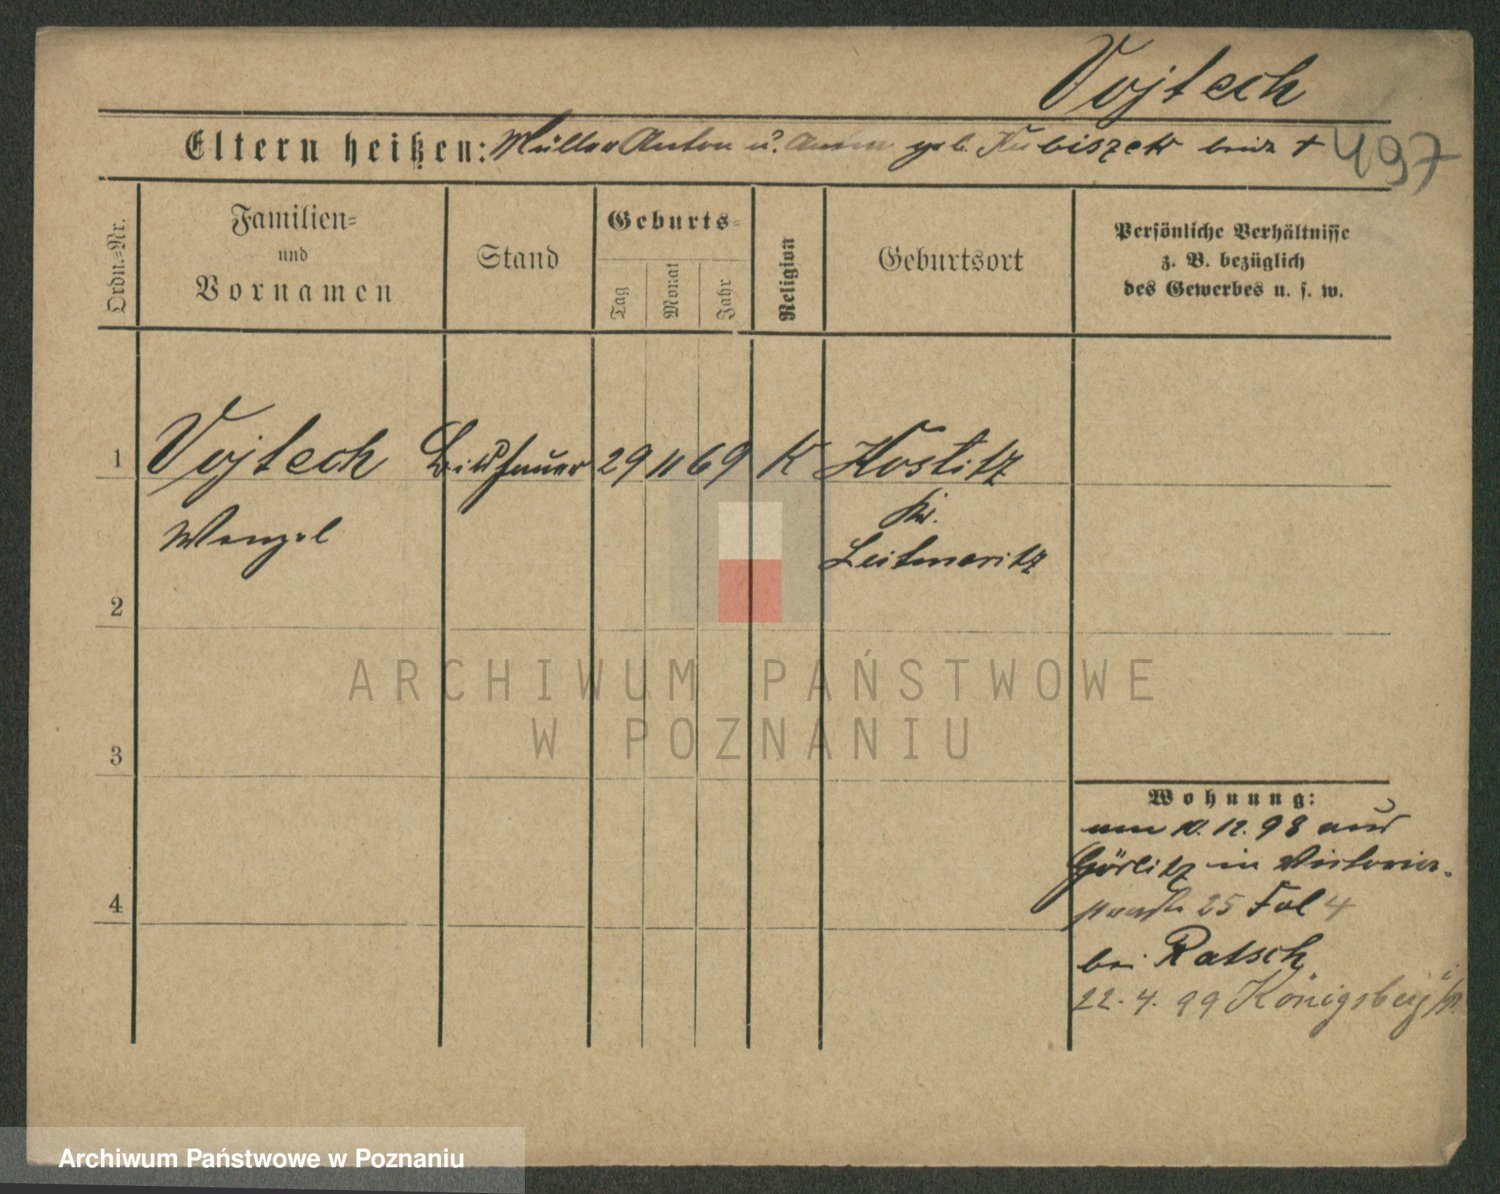 Vojtech
Eltern heißen: Müller Anton u. Anna geb. Kubiszek beide †
497
Ordn.-Nr.
Familien-
und
Vornamen
Stand
Geburts-
Tag
Monat
Jahr
Religion
Geburtsort
Persönliche Verhältnisse
z. B. bezüglich
des Gewerbes u. s. w.
1 Vojtech Bildhauer 29 11 69 K Kostitz
Wenzel
Kr.
Leitmeritz
2
3
4
Wohnung:
am 10. 12. 98 aus
Görlitz in Victoria-
straße 25 Fol 4
bei Ratsch
22. 4. 99 Königsberg i/P.
ARCHIWUM PAŃSTWOWE
W POZNANIU
Archiwum Państwowe w Poznaniu